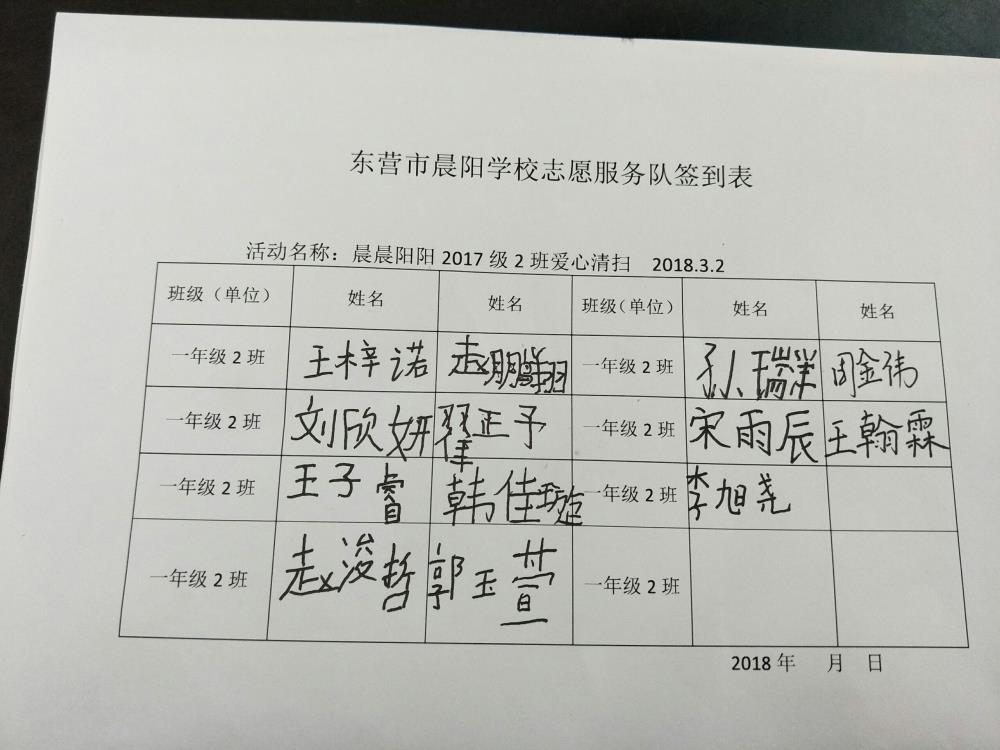 东营市晨阳学校志愿服务队签到表
活动名称：晨晨阳阳 2017 级 2 班爱心清扫 2018.3.2
班级（单位） 姓名 姓名 班级（单位） 姓名 姓名
一年级 2 班 王梓诺 赵鹏翔 一年级 2 班 孙瑞泽 周金祎
一年级 2 班 刘欣妍 翟正予 一年级 2 班 宋雨辰 王翰霖
一年级 2 班 王子睿 韩佳璇 一年级 2 班 李旭尧
一年级 2 班 赵浚哲 郭玉萱 一年级 2 班
2018 年 月 日